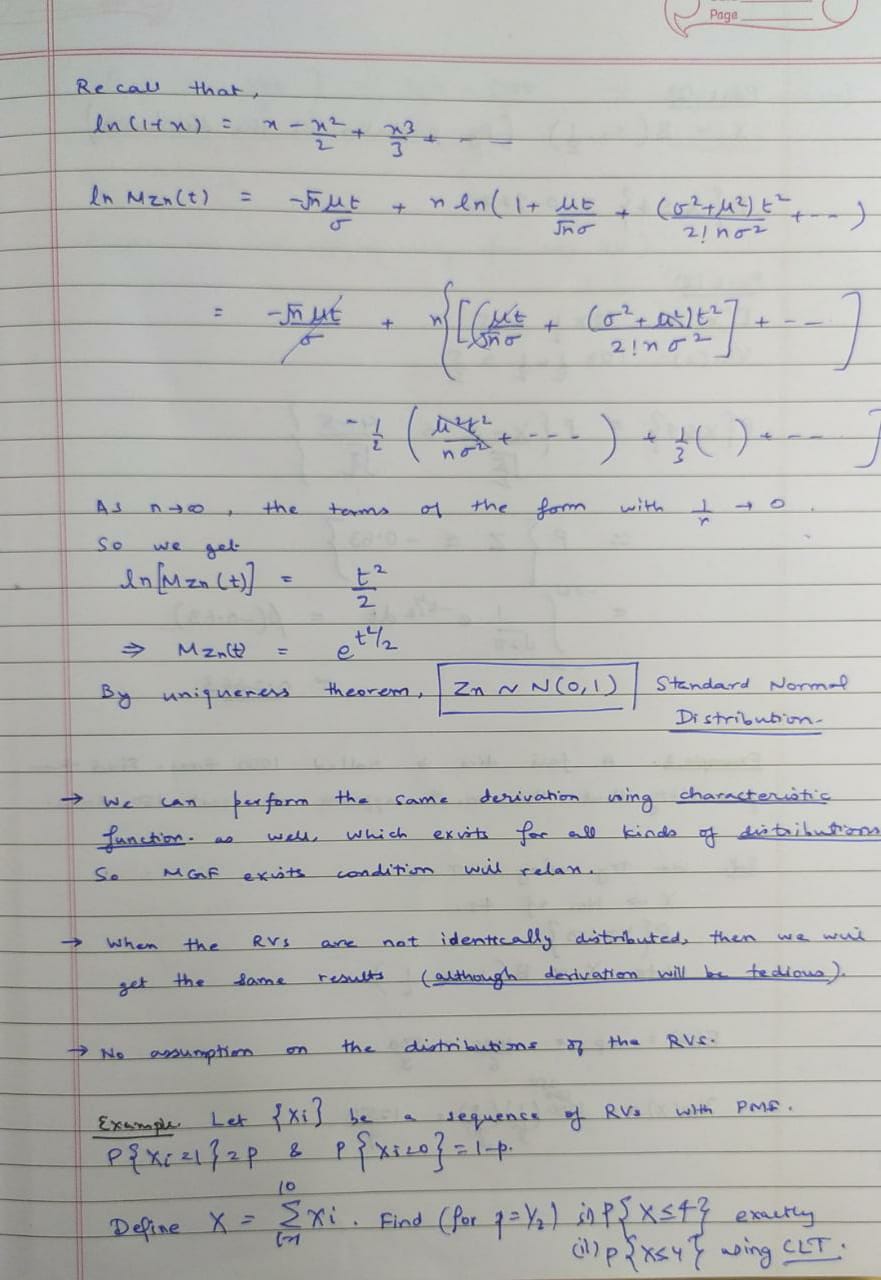 Page
Recall that,
ln(1+x) = x - x²/2 + x³/3 + - - -
ln Mzn(t) = -√n μt/σ + n ln(1 + μt/√nσ + (σ²+μ²)t²/2! nσ² + - - -)
= -√n μt/σ + n{[(μt/√nσ + (σ²+μ²)t²/2! nσ²] + - - -]
- 1/2 (μ²t²/nσ² + - - - -) + 1/3( ) + - - -]
As n→∞, the terms of the form with 1/n → 0.
So we get
ln[Mzn(t)] = t²/2
⇒ Mzn(t) = e^t²/2
By uniqueness theorem, Zn ~ N(0,1) Standard Normal
Distribution.
→ We can perform the same derivation using characteristic
function. as well, which exists for all kinds of distributions
So MGF exists condition will relax.
→ When the RVs are not identically distributed, then we will
get the same results (although derivation will be tedious).
→ No assumption on the distributions of the RVs.
Example. Let {Xi} be a sequence of RVs with PMF.
P{Xi=1}=p & P{Xi=0}=1-p.
Define X = Σ_{i=1}^{10} Xi. Find (for p=1/2) i) P{X≤4} exactly
(ii) P{X≤4} using CLT.